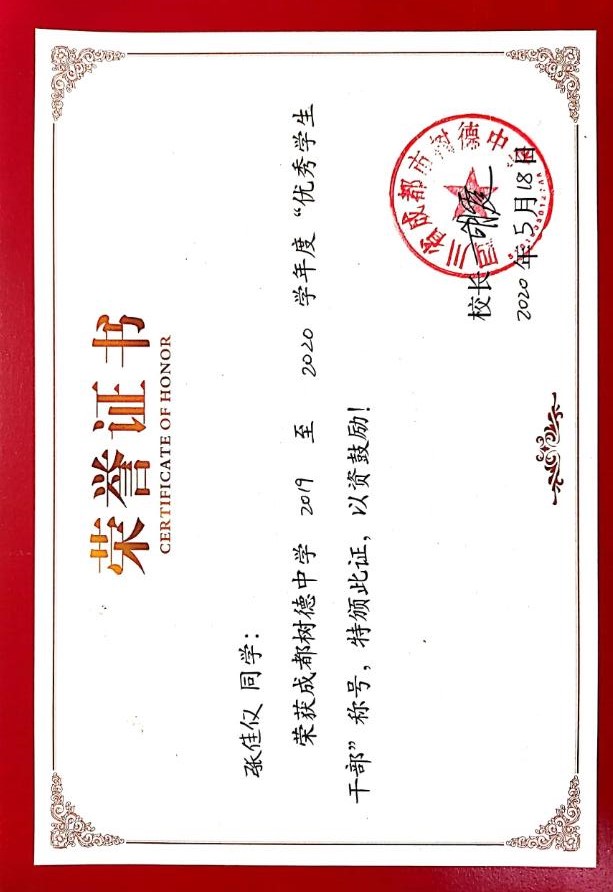 荣誉证书
CERTIFICATE OF HONOR
张佳仪 同学：
荣获成都树德中学 2019 至 2020 学年度“优秀学生
干部”称号，特颁此证，以资鼓励！
校长
2020年5月18日
四川省成都市树德中学